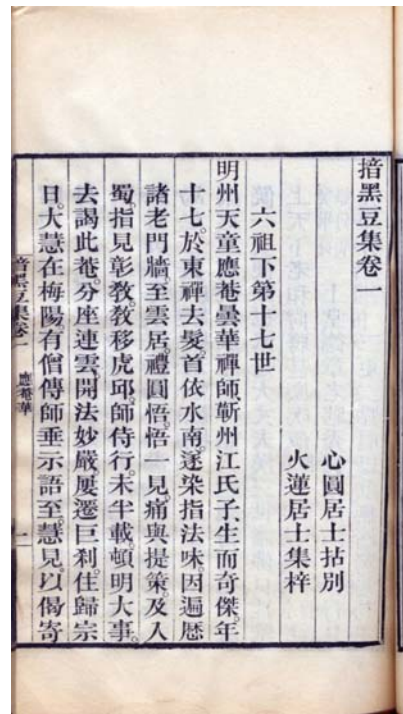 揞黑豆集卷一
心圓居士拈別
火蓮居士集梓
六祖下第十七世
明州天童應菴曇華禪師、蘄州江氏子、生而奇傑。年
十七。於東禪去髮。首依水南。遂染指法味。因遍歷
諸老門牆。至雲居。禮圓悟。悟一見。痛與提策。及入
蜀。指見彰敎。敎移虎邱。師侍行。未半載。頓明大事。
去謁此菴。分座連雲。開法妙嚴。屢遷巨刹。住歸宗
日。大慧在梅陽。有僧傳師垂示語至。慧見。以偈寄
揞黑豆集卷一
應菴華
一